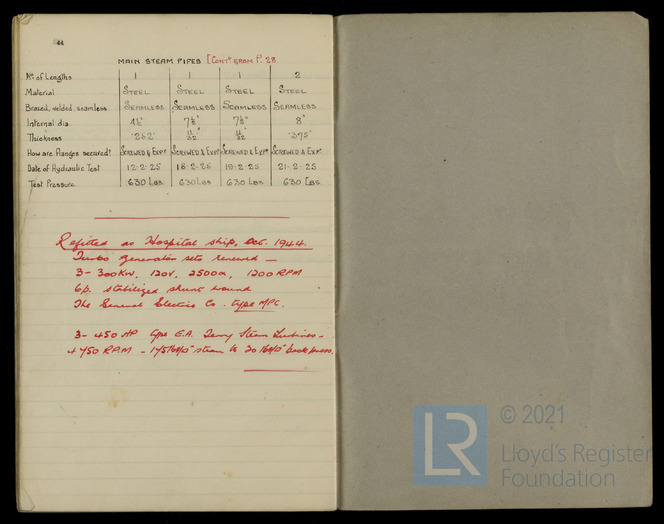 44
MAIN STEAM PIPES [CONTD FROM P. 28
No of Lengths 1 1 1 2
Material STEEL STEEL STEEL STEEL
Brazed, welded, seamless SEAMLESS SEAMLESS SEAMLESS SEAMLESS
Internal dia 4½" 7½" 7½" 8"
Thickness .252" 11/32" 11/32" .375"
How are flanges secured? SCREWED & EXPD SCREWED & EXPD SCREWED & EXPD SCREWED & EXPD
Date of Hydraulic Test 12-2-25 18-2-25 19-2-25 21-2-25
Test Pressure 630 LBS 630 LBS 630 LBS 630 LBS
Refitted as Hospital ship, Oct. 1944.
Turbo generator sets renewed —
3 - 300KW, 120V, 2500a, 1200 RPM
6p. stabilized shunt wound
The General Electric Co. type MPC.
3 - 450 HP type E.A. Terry Steam Turbines -
4750 RPM - 175lb/□" steam to 20 lb/□" back press.
© 2021
LR
Lloyd's Register
Foundation